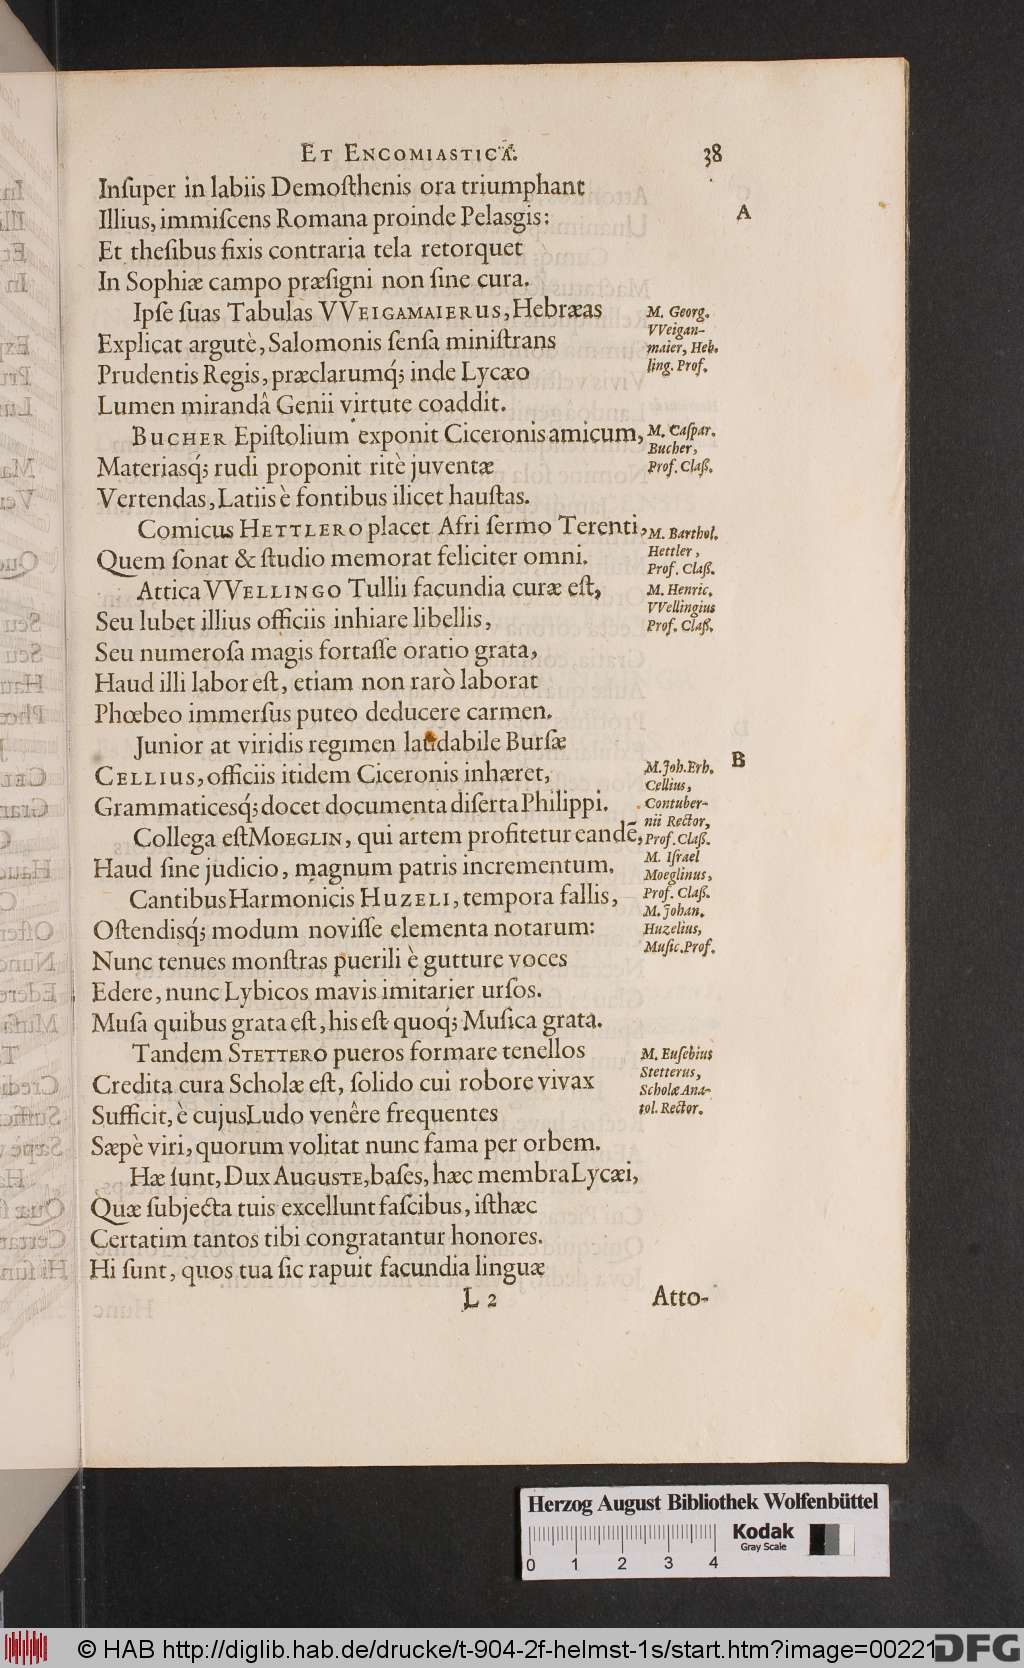 ET ENCOMIASTICA. 38
Inſuper in labiis Demoſthenis ora triumphant
Illius, immiſcens Romana proinde Pelasgis:
A
Et theſibus fixis contraria tela retorquet
In Sophiæ campo præſigni non ſine cura.
Ipſe ſuas Tabulas VVEIGAMAIERUS, Hebræas
Explicat argutè, Salomonis ſenſa miniſtrans
Prudentis Regis, præclarumq́; inde Lycæo
Lumen mirandâ Genii virtute coaddit.
M. Georg.
VVeigan-
maier, Heb.
ling. Prof.
BUCHER Epiſtolium exponit Ciceronis amicum,
Materiasq́; rudi proponit ritè juventæ
Vertendas, Latiis è fontibus ilicet hauſtas.
M. Caſpar.
Bucher,
Prof. Claſſ.
Comicus HETTLERO placet Afri ſermo Terenti,
Quem ſonat & ſtudio memorat feliciter omni.
M. Barthol.
Hettler,
Prof. Claſſ.
Attica VVELLINGO Tullii facundia curæ eſt,
Seu lubet illius officiis inhiare libellis,
Seu numeroſa magis fortaſſe oratio grata,
Haud illi labor eſt, etiam non rarò laborat
Phœbeo immerſus puteo deducere carmen.
M. Henric.
VVellingius
Prof. Claſſ.
Junior at viridis regimen laudabile Burſæ
CELLIUS, officiis itidem Ciceronis inhæret,
Grammaticesq́; docet documenta diſerta Philippi.
B
M. Joh. Erh.
Cellius,
Contuber-
nii Rector,
Prof. Claſſ.
Collega eſt MOEGLIN, qui artem profitetur eandẽ,
Haud ſine judicio, magnum patris incrementum.
M. Iſrael
Moeglinus,
Prof. Claſſ.
Cantibus Harmonicis HUZELI, tempora fallis,
Oſtendisq́; modum noviſſe elementa notarum:
Nunc tenues monſtras puerili è gutture voces
Edere, nunc Lybicos mavis imitarier urſos.
Muſa quibus grata eſt, his eſt quoq́; Muſica grata.
M. Johan.
Huzelius,
Muſic. Prof.
Tandem STETTERO pueros formare tenellos
Credita cura Scholæ eſt, ſolido cui robore vivax
Sufficit, è cujus Ludo venêre frequentes
Sæpè viri, quorum volitat nunc fama per orbem.
M. Euſebius
Stetterus,
Scholæ Ana-
tol. Rector.
Hæ ſunt, Dux AUGUSTE, baſes, hæc membra Lycæi,
Quæ ſubjecta tuis excellunt faſcibus, iſthæc
Certatim tantos tibi congratantur honores.
Hi ſunt, quos tua ſic rapuit facundia linguæ
L 2 Atto-
Herzog August Bibliothek Wolfenbüttel
0 1 2 3 4
Kodak
Gray Scale
© HAB http://diglib.hab.de/drucke/t-904-2f-helmst-1s/start.htm?image=00221
DFG